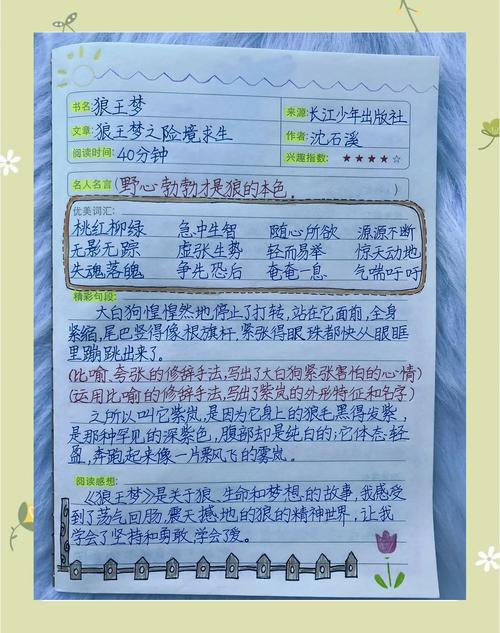 书名:狼王梦
来源:长江少年出版社
文章:狼王梦之险境求生
作者:沈石溪
阅读时间:40分钟
兴趣指数:★★★★☆
名人名言(野心勃勃才是狼的本色.)
优美词汇:
桃红柳绿 急中生智 随心所欲 源源不断
无影无踪 虚张生势 轻而易举 惊天动地
失魂落魄 争先恐后 奄奄一息 气喘吁吁
精彩句段:
大白狗惶惶然地停止了打转,站在它面前,全身
紧缩,尾巴竖得像根旗杆,紧张得眼珠都快从眼眶
里蹦跳出来了。
(比喻、夸张的修辞手法,写出了大白狗紧张害怕的心情)
(运用比喻的修辞手法,写出了紫岚的外形特征和名字)
之所以叫它紫岚,是因为它身上的狼毛黑得发紫,
是那种罕见的深紫色,腹部却是纯白的;它体态轻
盈,奔跑起来像一片飘飞的雾岚。
阅读感想:
《狼王梦》是关于狼、生命和梦想的故事,我感受
到了荡气回肠,震天撼地的狼的精神世界,让我
学会了坚持和勇敢,学会了爱。